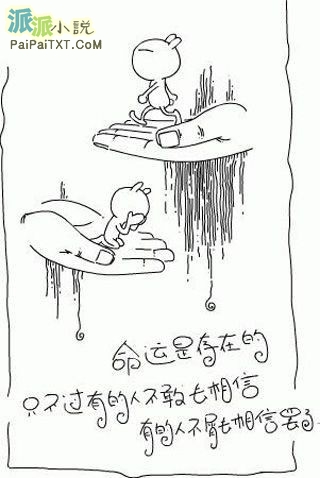 派派小説
PaiPaiTXT.CoM
命运是存在的
只不过有的人不敢去相信
有的人不屑去相信罢了